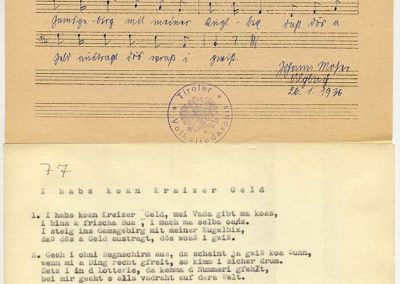 Gamsge-birg mit meiner Kugl-bix daß dös a
Geld austragt dös woaß i gwiß.
Johann Moser
26.1.1936
Tiroler Volksliedarchiv
77
I habs koan Kreizer Geld
1. I habs koan Kreizer Geld, mei Vada gibt ma koas,
i bins a frischa Bua, i mach ma selba oans.
I steig ins Gamsgebirg mit meiner Kugelbix,
daß dös a Geld austragt, dös woaß i gwiß.
2. Geah i ohni Regnschirm aus, da scheint ja gwiß koa Sunn,
wenn mi a Ding recht gfreit, so kimm i sicher drum.
Setz i in d Lotterie, da kemma d Nummeri gfehlt,
bei mir geaht s alls vadraht auf dera Welt.